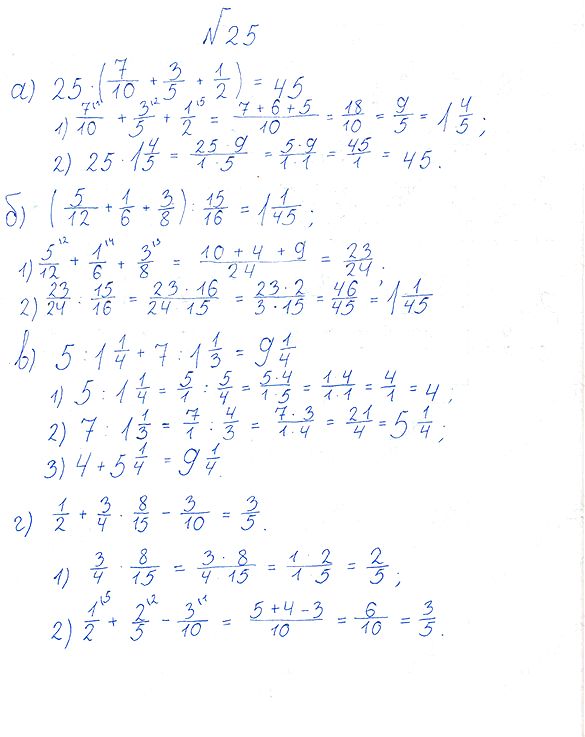 № 25
а) 25 · (7/10 + 3/5 + 1/2) = 45
1) 7/10 + 3/5 + 1/2 = (7 + 6 + 5)/10 = 18/10 = 9/5 = 1 4/5 ;
2) 25 · 1 4/5 = (25 · 9)/(1 · 5) = (5 · 9)/(1 · 1) = 45/1 = 45 .
б) (5/12 + 1/6 + 3/8) : 15/16 = 1 1/45 ;
1) 5/12 + 1/6 + 3/8 = (10 + 4 + 9)/24 = 23/24 .
2) 23/24 : 15/16 = (23 · 16)/(24 · 15) = (23 · 2)/(3 · 15) = 46/45 = 1 1/45
в) 5 : 1 1/4 + 7 : 1 1/3 = 9 1/4
1) 5 : 1 1/4 = 5/1 : 5/4 = (5 · 4)/(1 · 5) = (1 · 4)/(1 · 1) = 4/1 = 4 ;
2) 7 : 1 1/3 = 7/1 : 4/3 = (7 · 3)/(1 · 4) = 21/4 = 5 1/4 ;
3) 4 + 5 1/4 = 9 1/4 .
г) 1/2 + 3/4 · 8/15 − 3/10 = 3/5 .
1) 3/4 · 8/15 = (3 · 8)/(4 · 15) = (1 · 2)/(1 · 5) = 2/5 ;
2) 1/2 + 2/5 − 3/10 = (5 + 4 − 3)/10 = 6/10 = 3/5 .